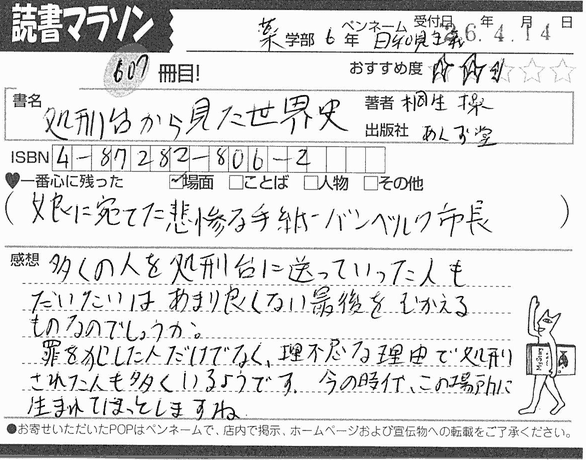 読書マラソン
薬学部 6年 ペンネーム 日和見主義 受付日 年 月 日 26.4.14
607 冊目! おすすめ度 ☆☆☆☆☆
書名 処刑台から見た世界史 著者 桐生 操
出版社 あんず堂
ISBN 4-87282-806-2
♥一番心に残った ☑場面 □ことば □人物 □その他
(娘に宛てた悲惨な手紙-バンベルク市長)
感想 多くの人を処刑台に送っていった人も
だいたいは あまり良くない最後をむかえる
ものなのでしょうか。
罪をおかした人だけでなく、理不尽な理由で処刑
された人も多くいるようです。今の時代、この場所に
生まれてほっとしますね
●お寄せいただいたPOPはペンネームで、店内で掲示、ホームページおよび宣伝物への転載をご了承ください。